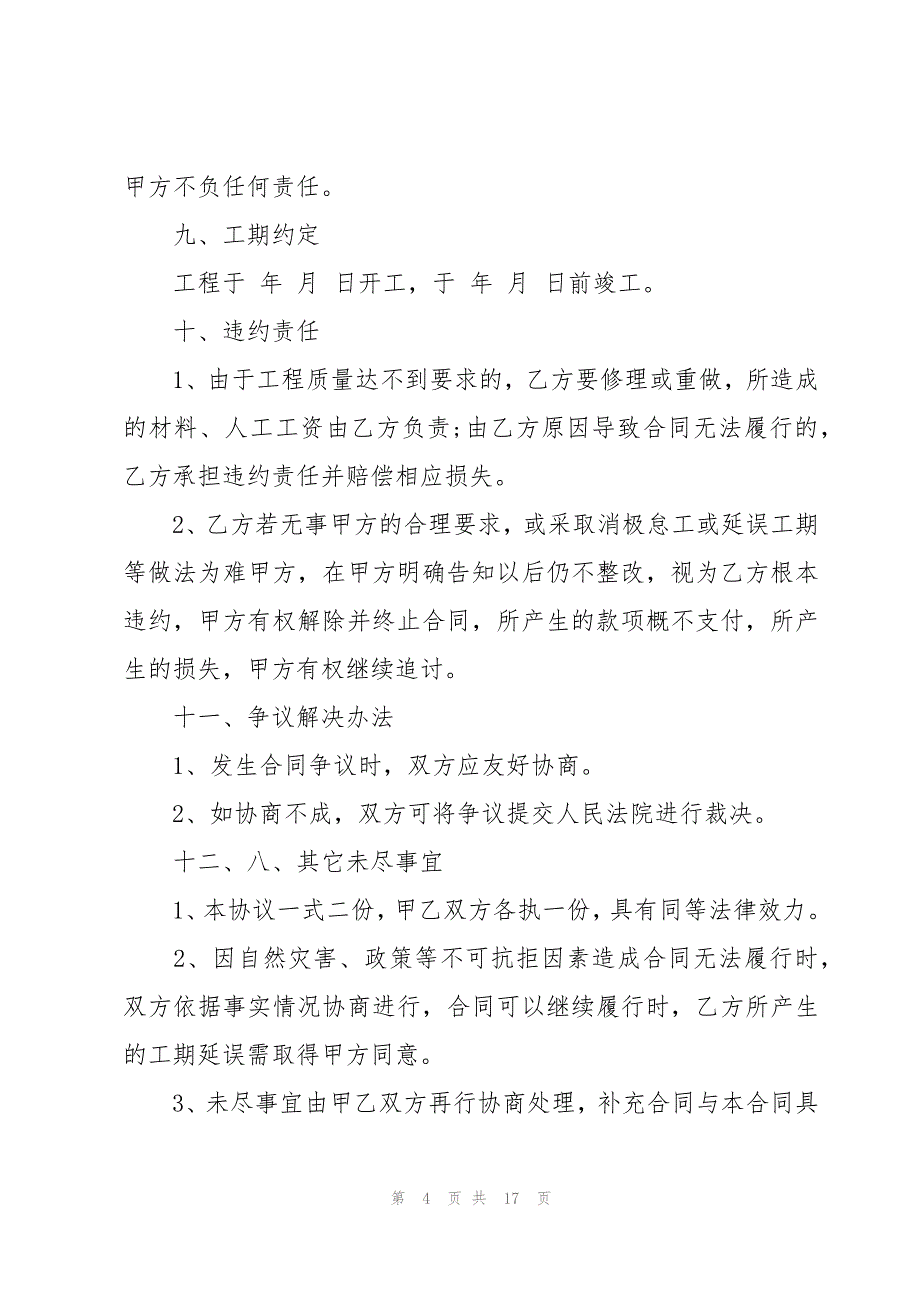 甲方不负任何责任。
九、工期约定
工程于 年 月 日开工，于 年 月 日前竣工。
十、违约责任
1、由于工程质量达不到要求的，乙方要修理或重做，所造成
的材料、人工工资由乙方负责;由乙方原因导致合同无法履行的，
乙方承担违约责任并赔偿相应损失。
2、乙方若无事甲方的合理要求，或采取消极怠工或延误工期
等做法为难甲方，在甲方明确告知以后仍不整改，视为乙方根本
违约，甲方有权解除并终止合同，所产生的款项概不支付，所产
生的损失，甲方有权继续追讨。
十一、争议解决办法
1、发生合同争议时，双方应友好协商。
2、如协商不成，双方可将争议提交人民法院进行裁决。
十二、八、其它未尽事宜
1、本协议一式二份，甲乙双方各执一份，具有同等法律效力。
2、因自然灾害、政策等不可抗拒因素造成合同无法履行时，
双方依据事实情况协商进行，合同可以继续履行时，乙方所产生
的工期延误需取得甲方同意。
3、未尽事宜由甲乙双方再行协商处理，补充合同与本合同具
第 4 页 共 17 页